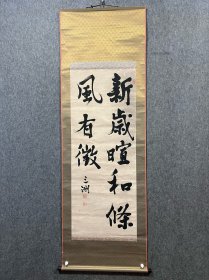 新歲暄和條
風有徵